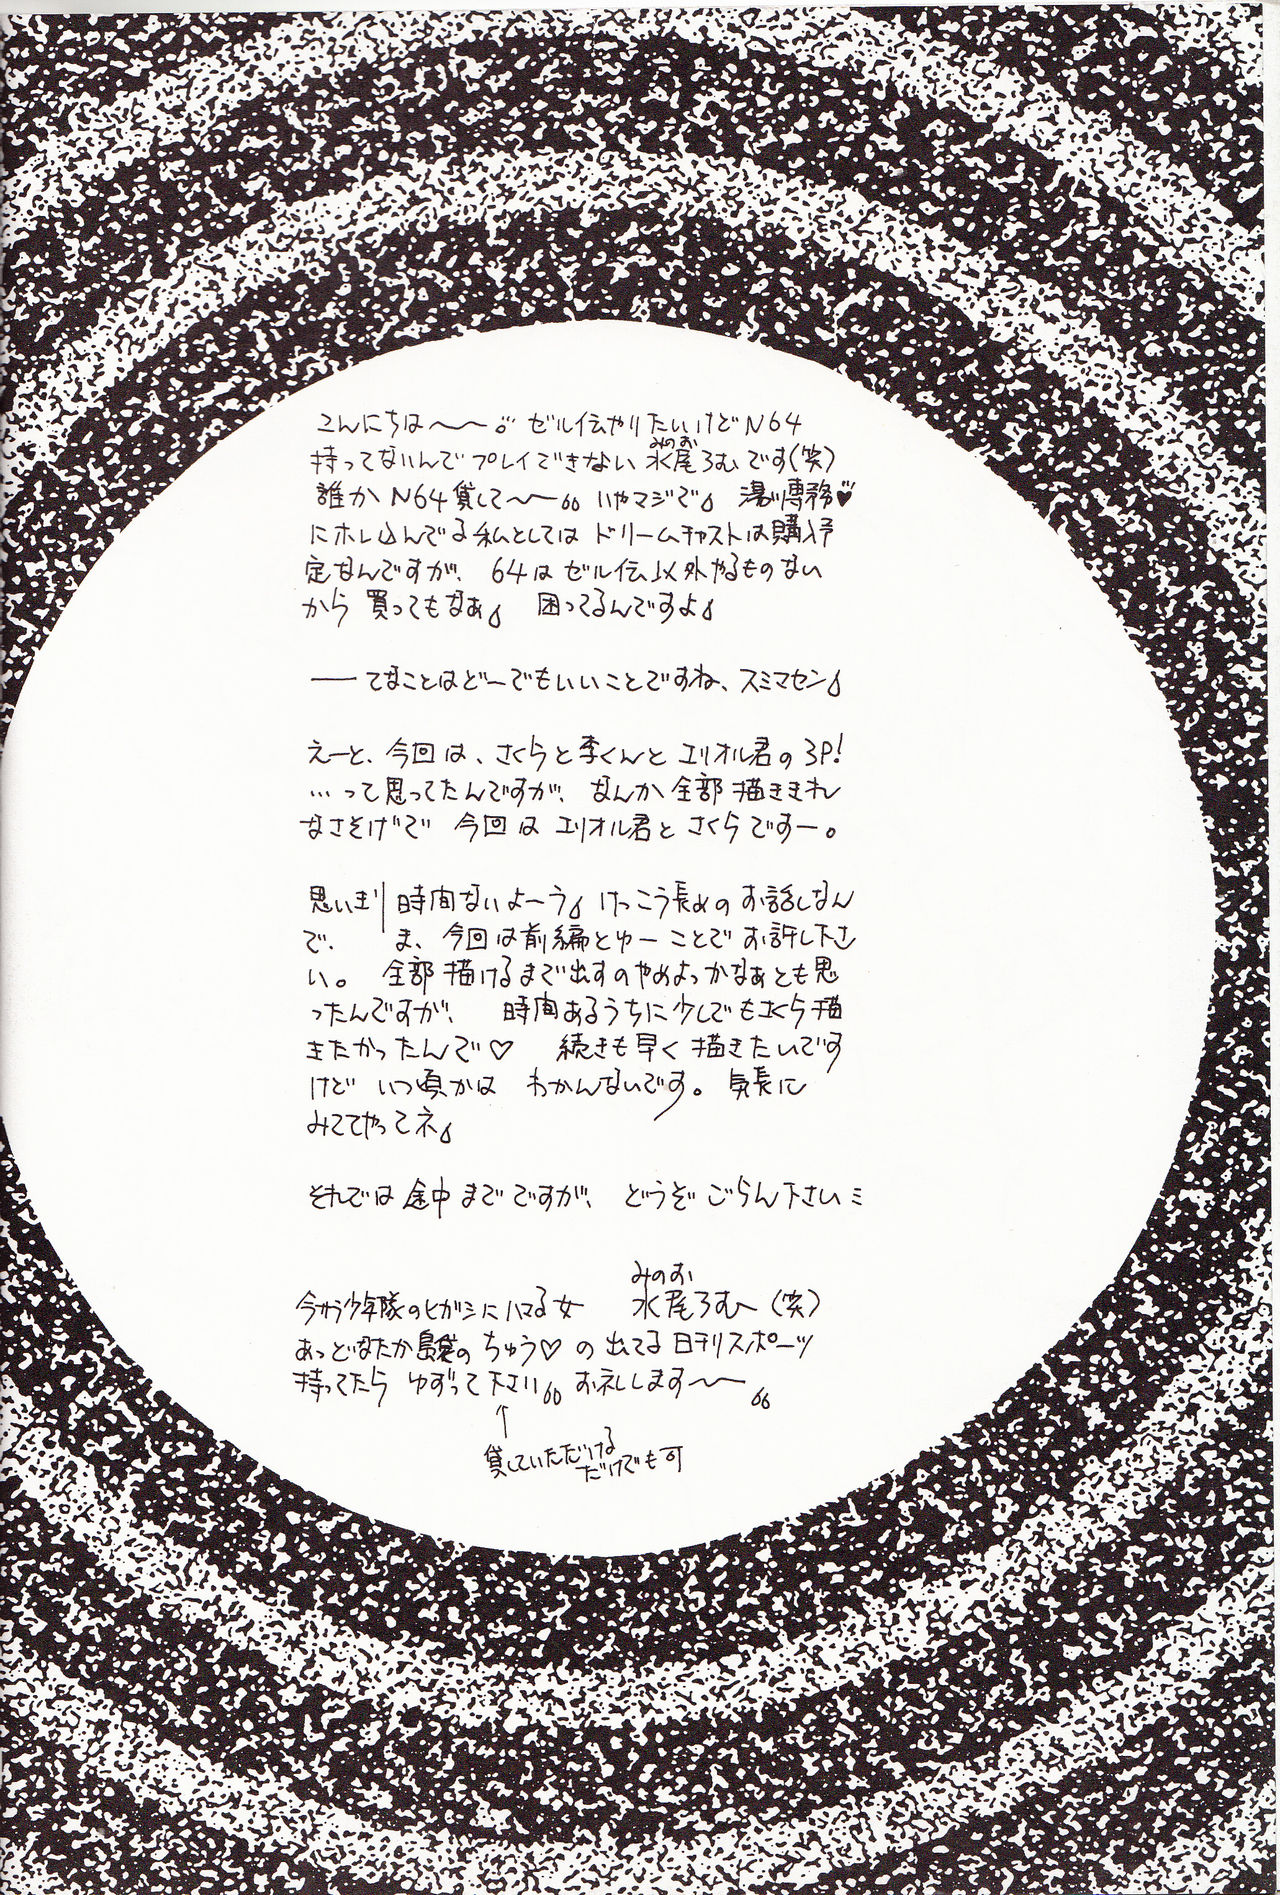 こんにちは〜〜 ゼル伝やりたいけどN64
持ってないんでプレイできない水尾ろむです(笑)
みのお
誰かN64貸して〜〜 いやマジで 湯川専務♥
にホレ込んでる私としてはドリームキャストは購入予
定なんですが、64はゼル伝以外やるものない
から買ってもなぁ 困ってるんですよ
――てなことはどーでもいいことですね、スミマセン
えーと、今回は、さくらと李くんとエリオル君の3P!
…って思ってたんですが、なんか全部描ききれ
なさそげで今回はエリオル君とさくらですー。
思いきり時間ないよーう けっこう長めのお話しなん
で、ま、今回は前編とゆーことでお許し下さ
い。全部描けるまで出すのやめよっかなぁとも思
ったんですが、時間あるうちに少しでもさくら描
きたかったんで♡ 続きも早く描きたいです
けどいつ頃かはわかんないです。気長に
みててやってネ
それでは途中までですが、どうぞごらん下さい
みのお
今から少年隊のヒガシにハマる女 水尾ろむ(笑)
あっどなたかのちゅう♡の出てる日刊スポーツ
持ってたらゆずって下さい お礼します〜〜
↑
貸していただける
だけでも可